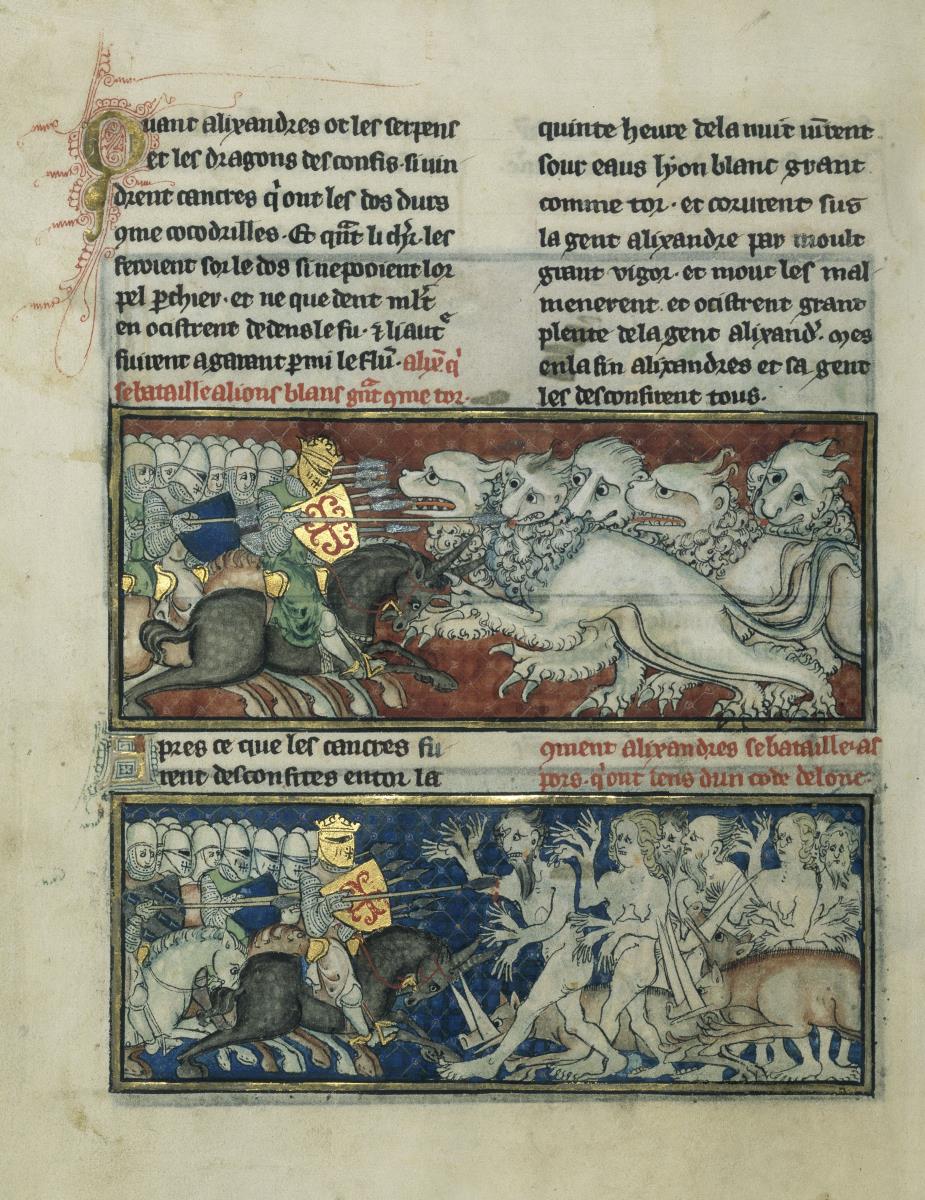 Quant alixandres ot les serpens
et les dragons desconfis · si uin
drent cancres q̇ ont les dos durs
ꝯme cocodrilles · Et q̃nt li chr̄ les
feroient sor le dos si ne pooient lor
pel ꝑchier · et ne que dent ml̄t
en ocistrent dedens le fu · ⁊ li aut᷒e
fuirent a garant ꝑmi le flū · q̇
se bataille a lions blans gñt ꝯme tor ·
quinte heure de la nuit uīrent
sour eaus lyon blanc grant
comme tor · et corurent sus
la gent alixandre par moult
grant vigor · et mout les mal
menerent · et ocistrent grant
plente de la gent alixand' · mes
en la fin alixandres et sa gent
les desconfirent tous ·
Apres ce que les cancres fu
rent desconfites entor la
ꝯment alixandres se bataille as
pors · q̇ ont dens dun code de lonc ·